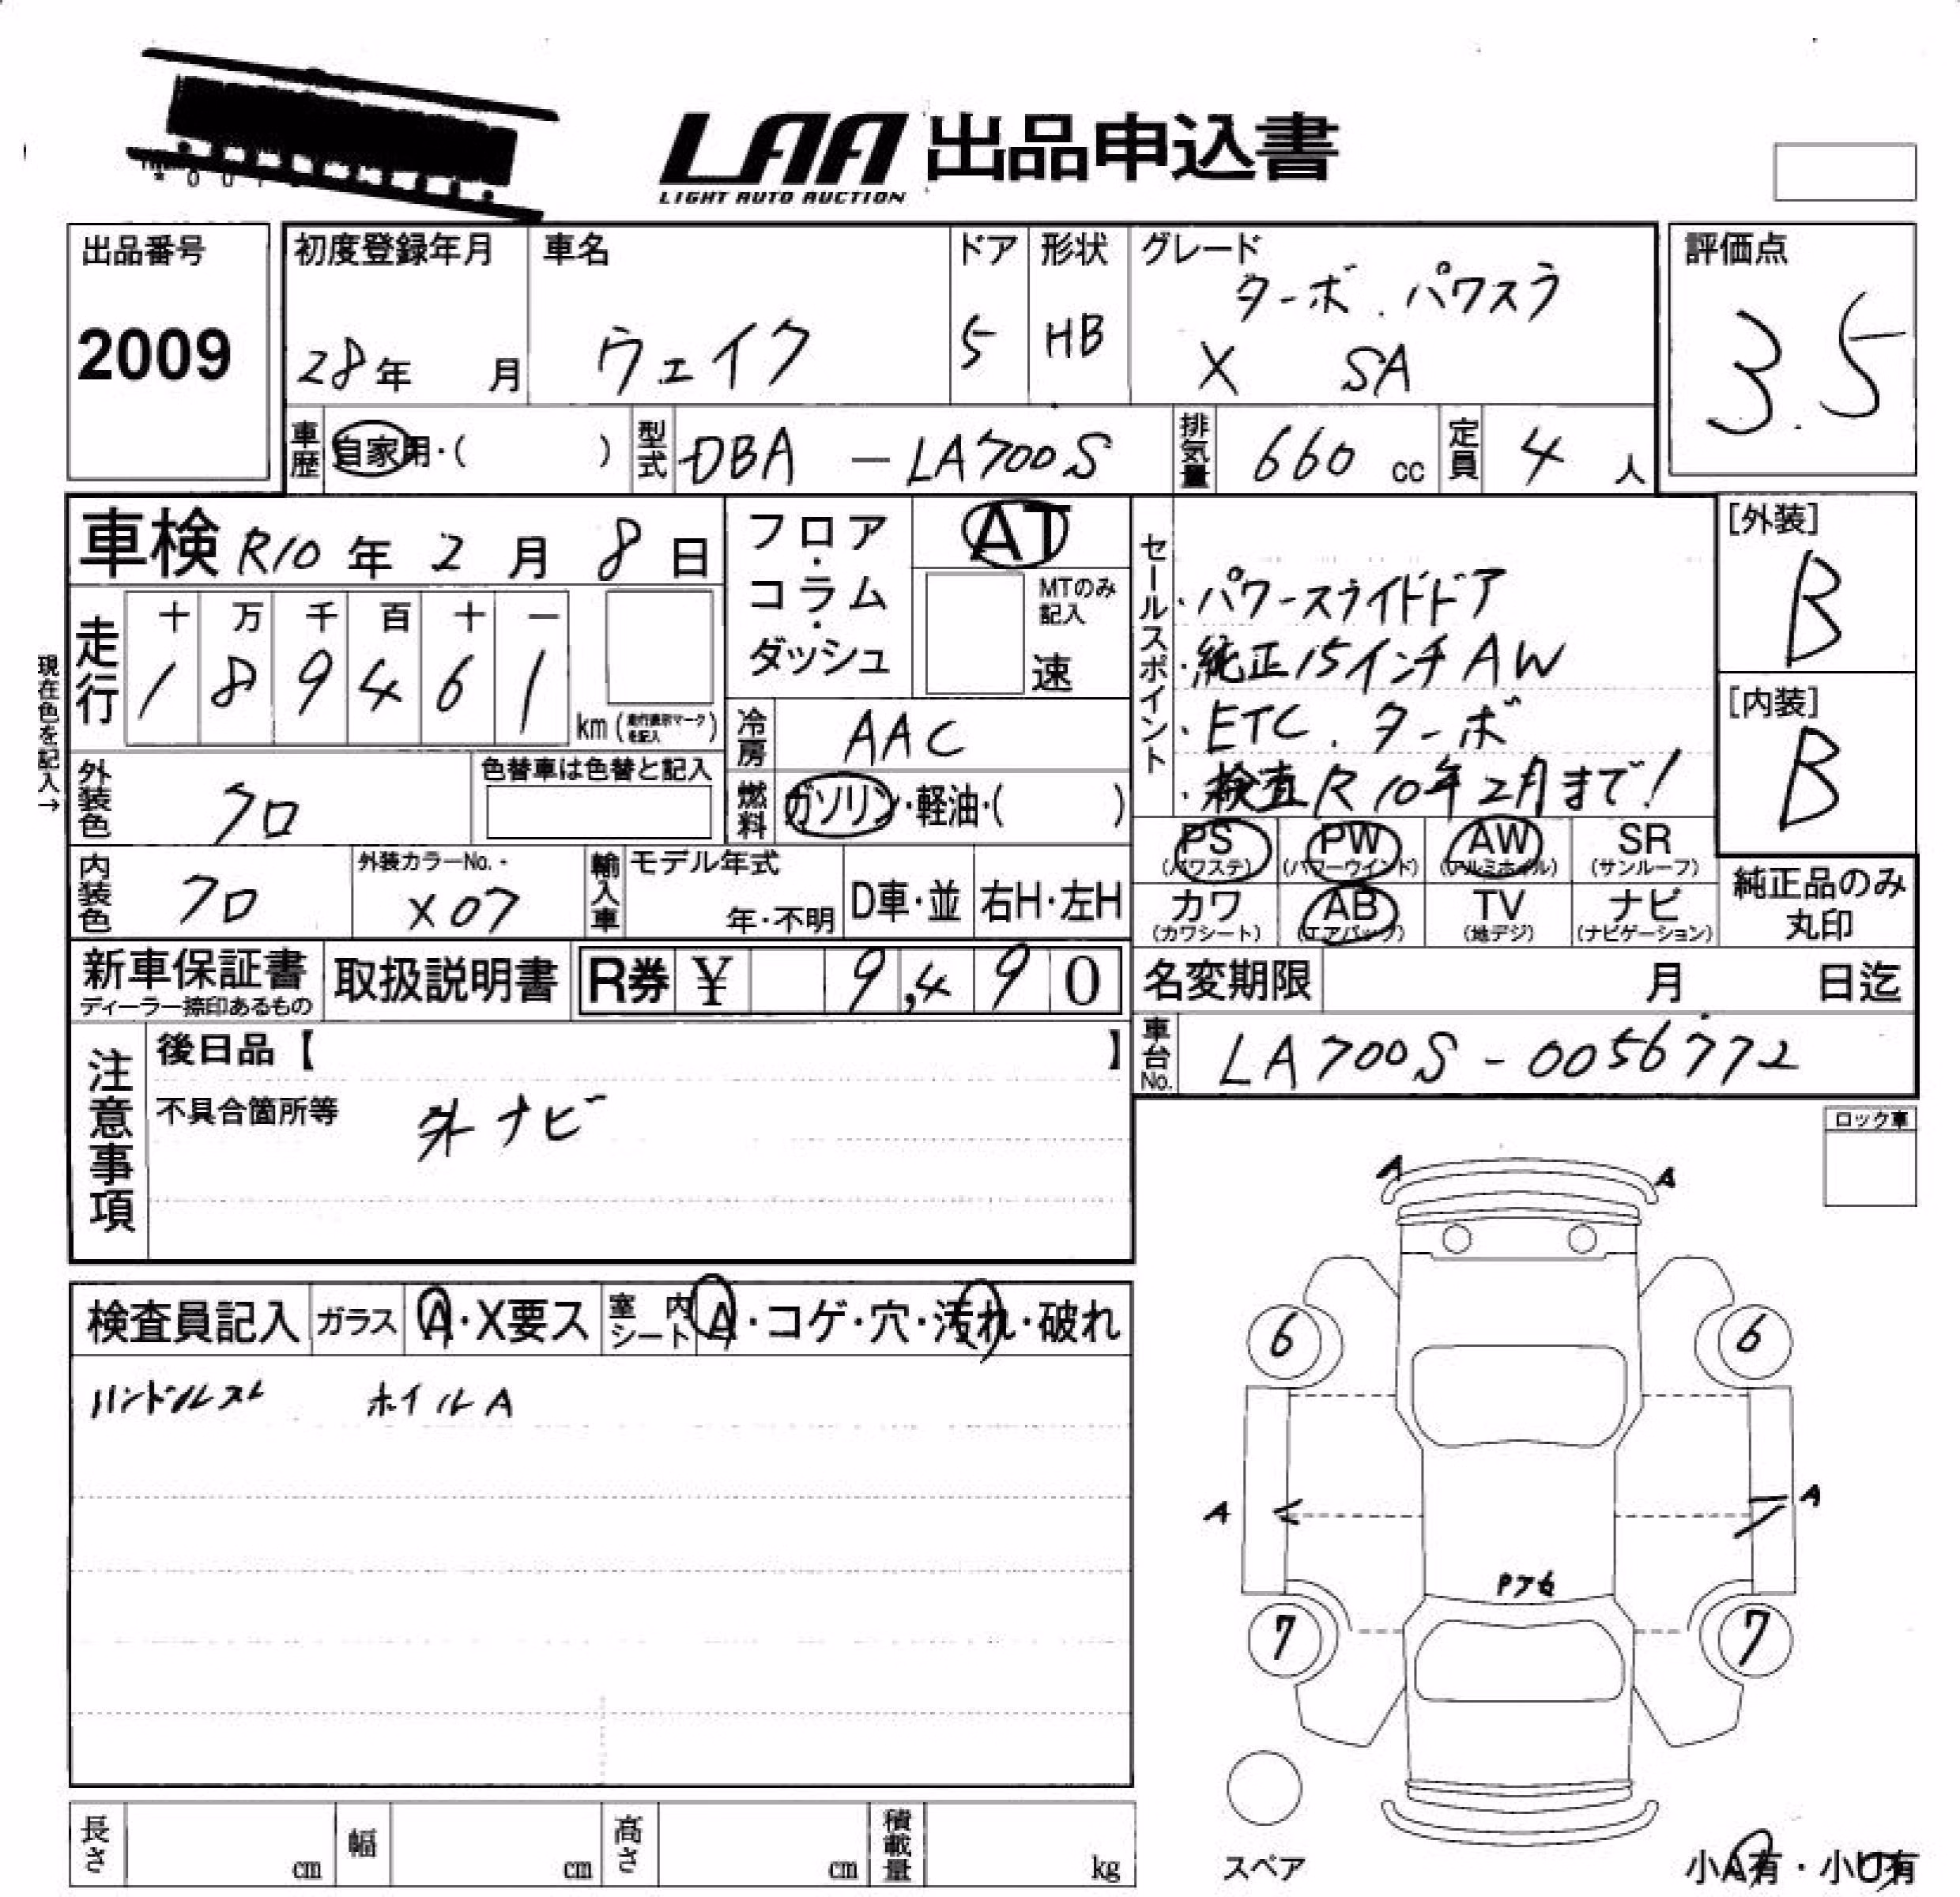 LAA 出品申込書
LIGHT AUTO AUCTION
出品番号
2009
初度登録年月
28年 月
車名
ウェイク
ドア
5
形状
HB
グレード
ターボ.パワスラ
X SA
評価点
3.5
車歴 自家用・( )
型式 DBA-LA700S
排気量 660cc
定員 4人
車検 R10年2月8日
現在色を記入→
走行
十 万 千 百 十 一
1 8 9 4 6 1
km(走行表示マークを記入)
フロア・コラム・ダッシュ
AT
MTのみ記入
速
冷房 AAC
燃料 ガソリン・軽油・( )
外装色 クロ
色替車は色替と記入
内装色 クロ
外装カラーNo.・
X07
輸入車
モデル年式
年・不明
D車・並
右H・左H
セールスポイント
・パワースライドドア
・純正15インチAW
・ETC.ターボ
・検査R10年2月まで!
[外装]
B
[内装]
B
PS(パワステ)
PW(パワーウインド)
AW(アルミホイル)
SR(サンルーフ)
カワ(カワシート)
AB(エアバッグ)
TV(地デジ)
ナビ(ナビゲーション)
純正品のみ丸印
新車保証書
ディーラー捺印あるもの
取扱説明書
R券 ¥ 9,490
名変期限 月 日迄
車台No. LA700S-0056772
注意事項
後日品【 】
不具合箇所等 外ナビ
ロック車
検査員記入
ガラス A・X要ス
室内シート A・コゲ・穴・汚れ・破れ
ハンドルスレ ホイルA
A A
6 6
A A
7 7
スペア
小A有・小U有
長さ cm
幅 cm
高さ cm
積載量 kg